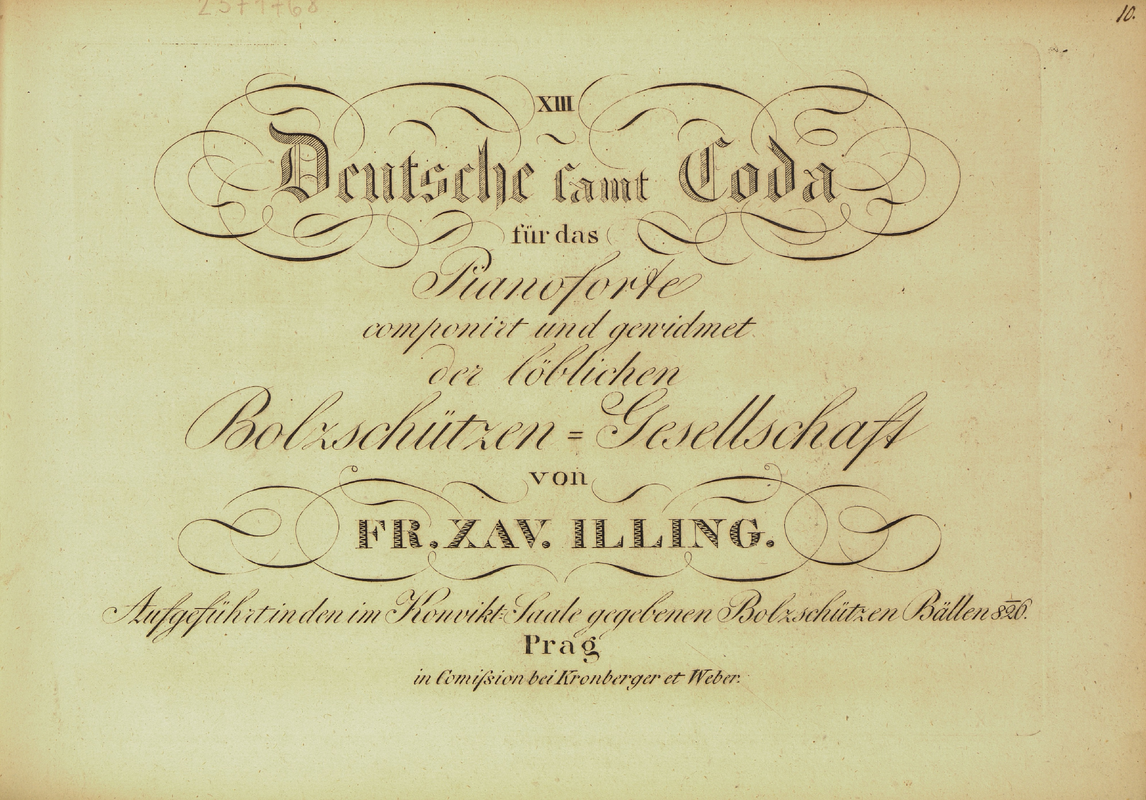 10.
XIII
Deutsche samt Coda
für das
Pianoforte
componirt und gewidmet
der löblichen
Bolzschützen = Gesellschaft
von
FR. XAV. ILLING.
Aufgeführt in den im Konvikt=Saale gegebenen Bolzschützen Bällen 826.
Prag
in Comißion bei Kronberger et Weber.